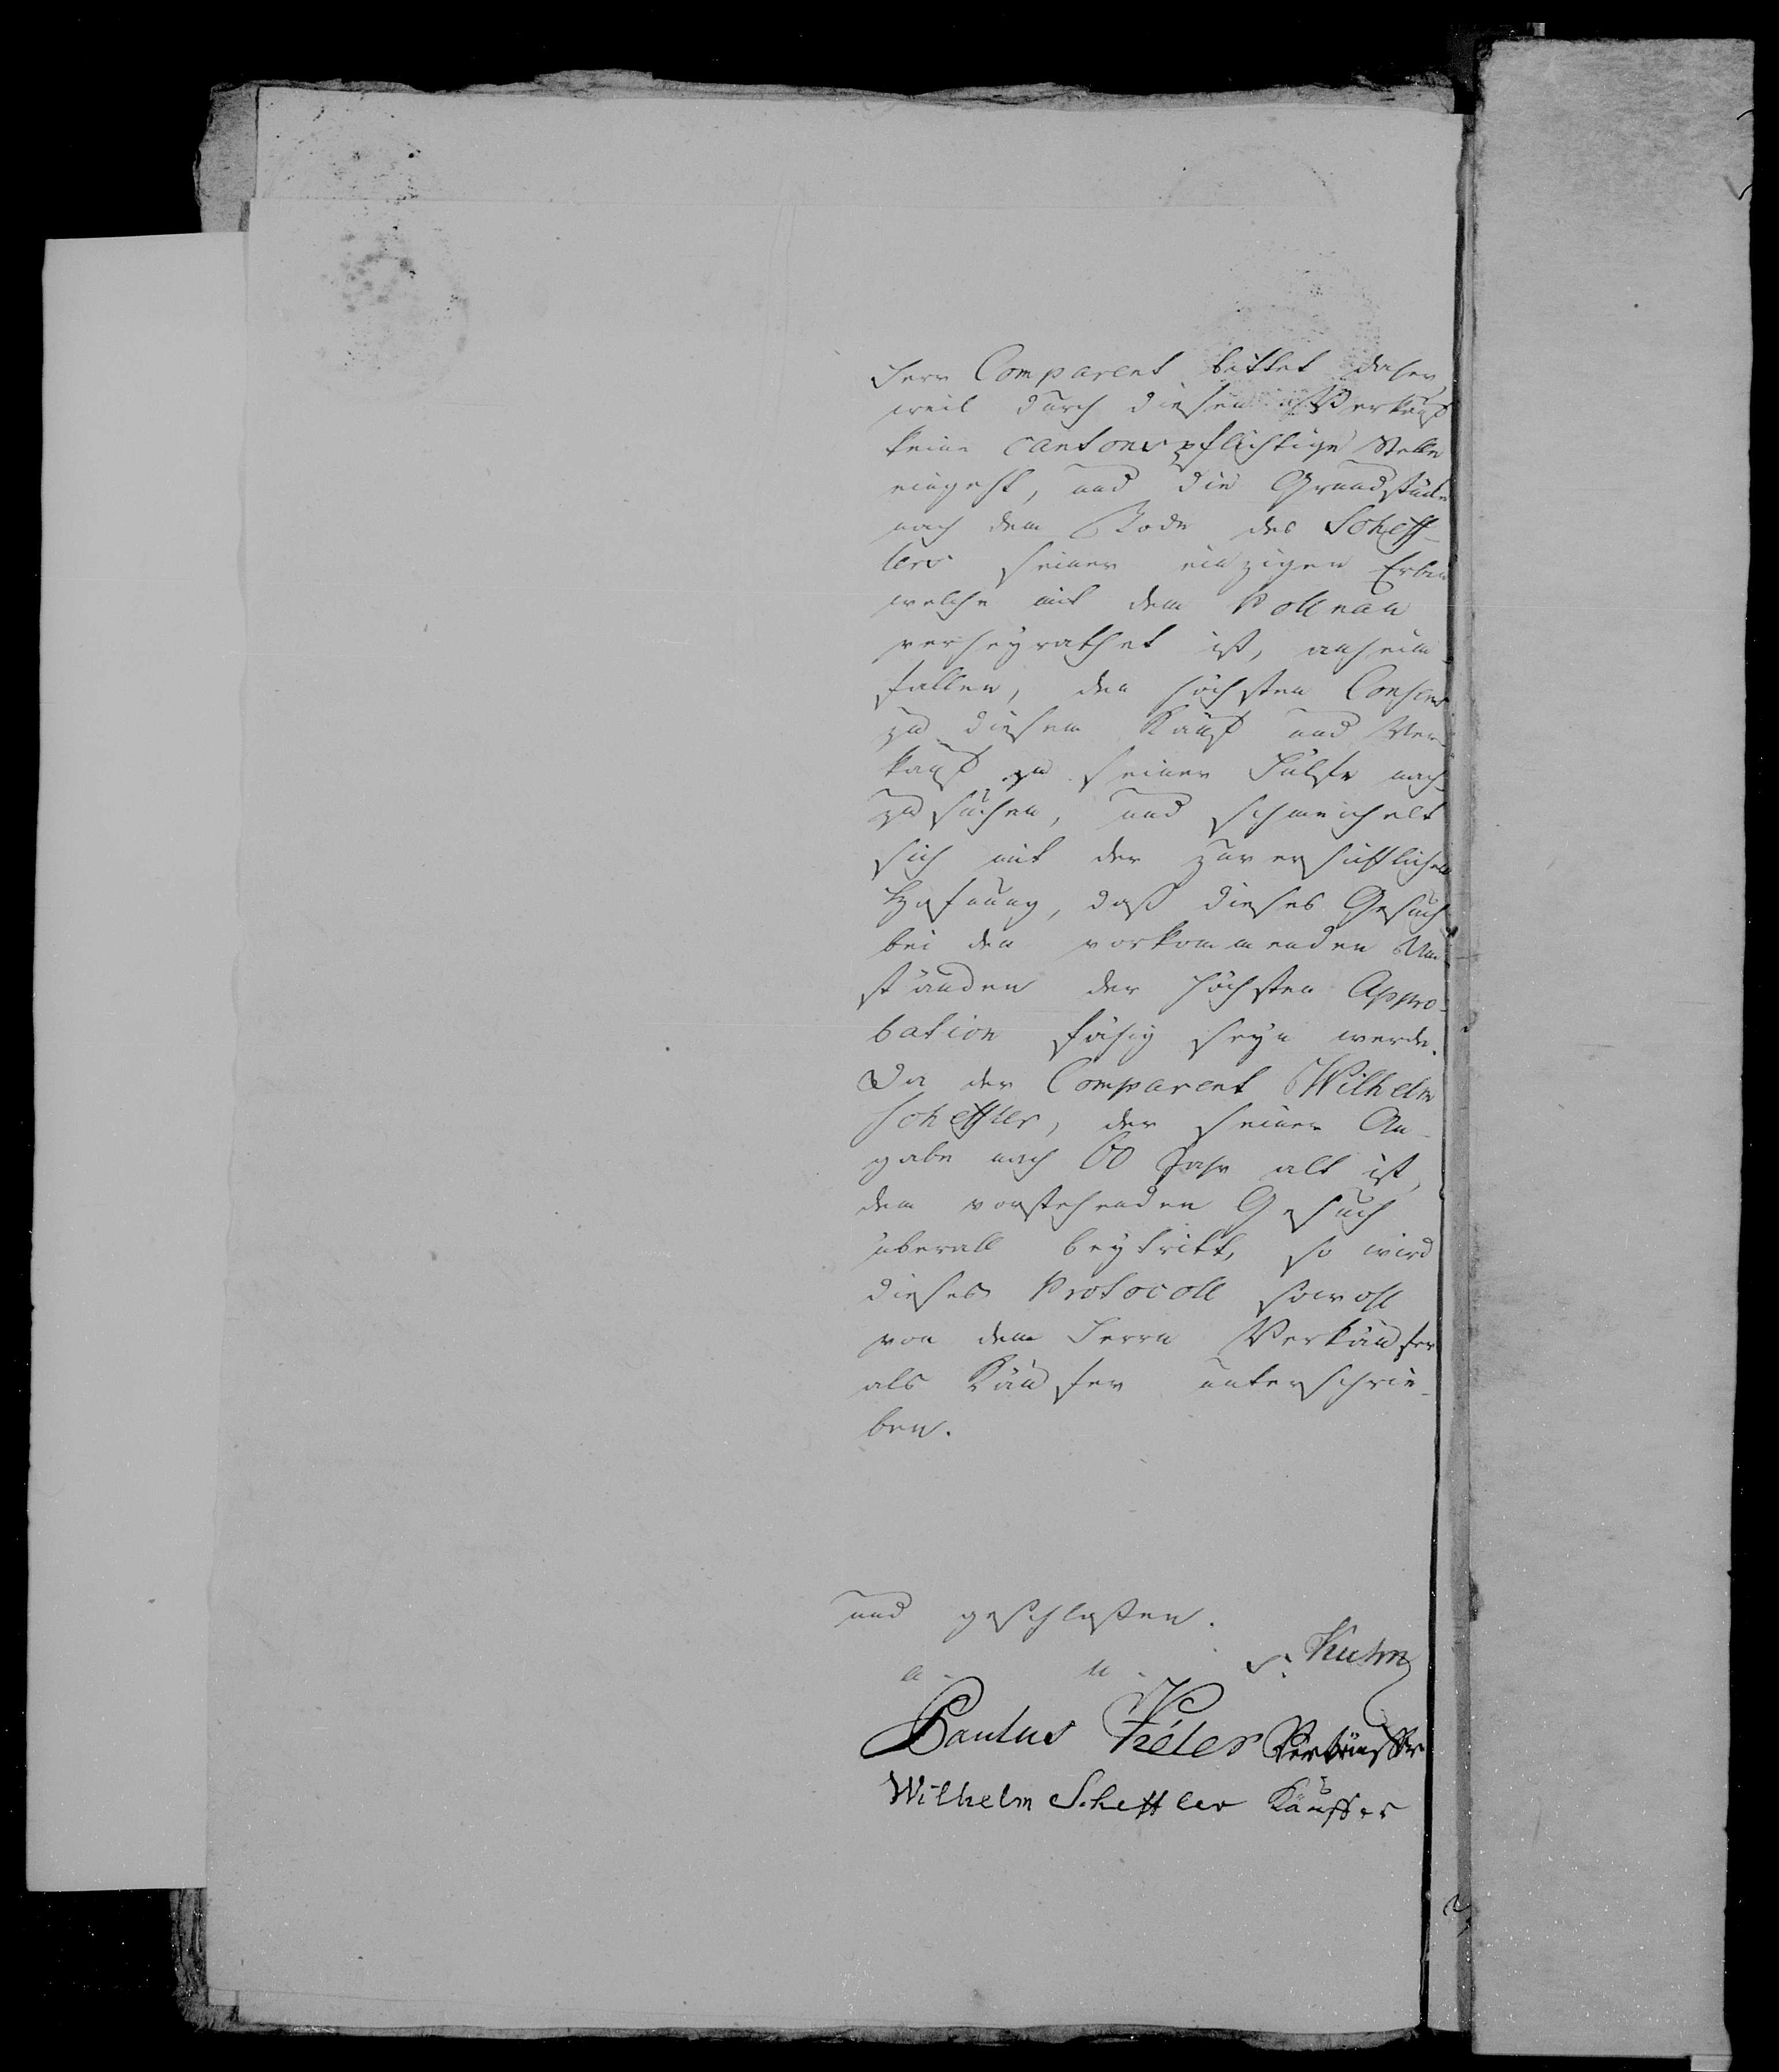 Herr Comparent bittet daher,
weil durch diesen Verkauf
keine cantonspflichtige Stelle
eingeht, und die Grundstücke
nach dem Tode des Scheff-
lers seiner einzigen Erbin
welche mit dem Pollnau
verheyrathet ist, anheim-
fallen, den höchsten Consens
zu diesem Kauf und Ver-
kauf zu seiner Hülfe nach-
zusuchen, und schmeichelt
sich mit der zuversichtlichen
Hofnung, daß dieses Gesuch
bei den vorkommenden Um-
ständen der höchsten Appro-
bation fähig seyn werde.
Da der Comparent Wilhelm
Scheffler, der seiner An-
gabe nach 60 Jahr alt ist,
dem vorstehenden Gesuch
überall beytritt, so wird
dieses Protocoll sowohl
von dem Herrn Verkäufer
als Käufer unterschrie-
ben.
und geschloßen.
a. u. s. Kuhn
Paulus Verkäuffer
Wilhelm Scheffler Käuffer